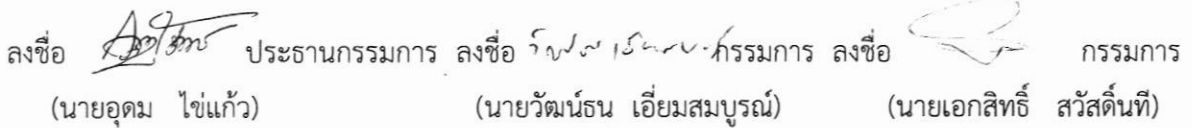 ลงชื่อ ประธานกรรมการ ลงชื่อ กรรมการ ลงชื่อ กรรมการ
(นายอุดม ไข่แก้ว) (นายวัฒน์ธน เอี่ยมสมบูรณ์) (นายเอกสิทธิ์ สวัสดิ์นที)